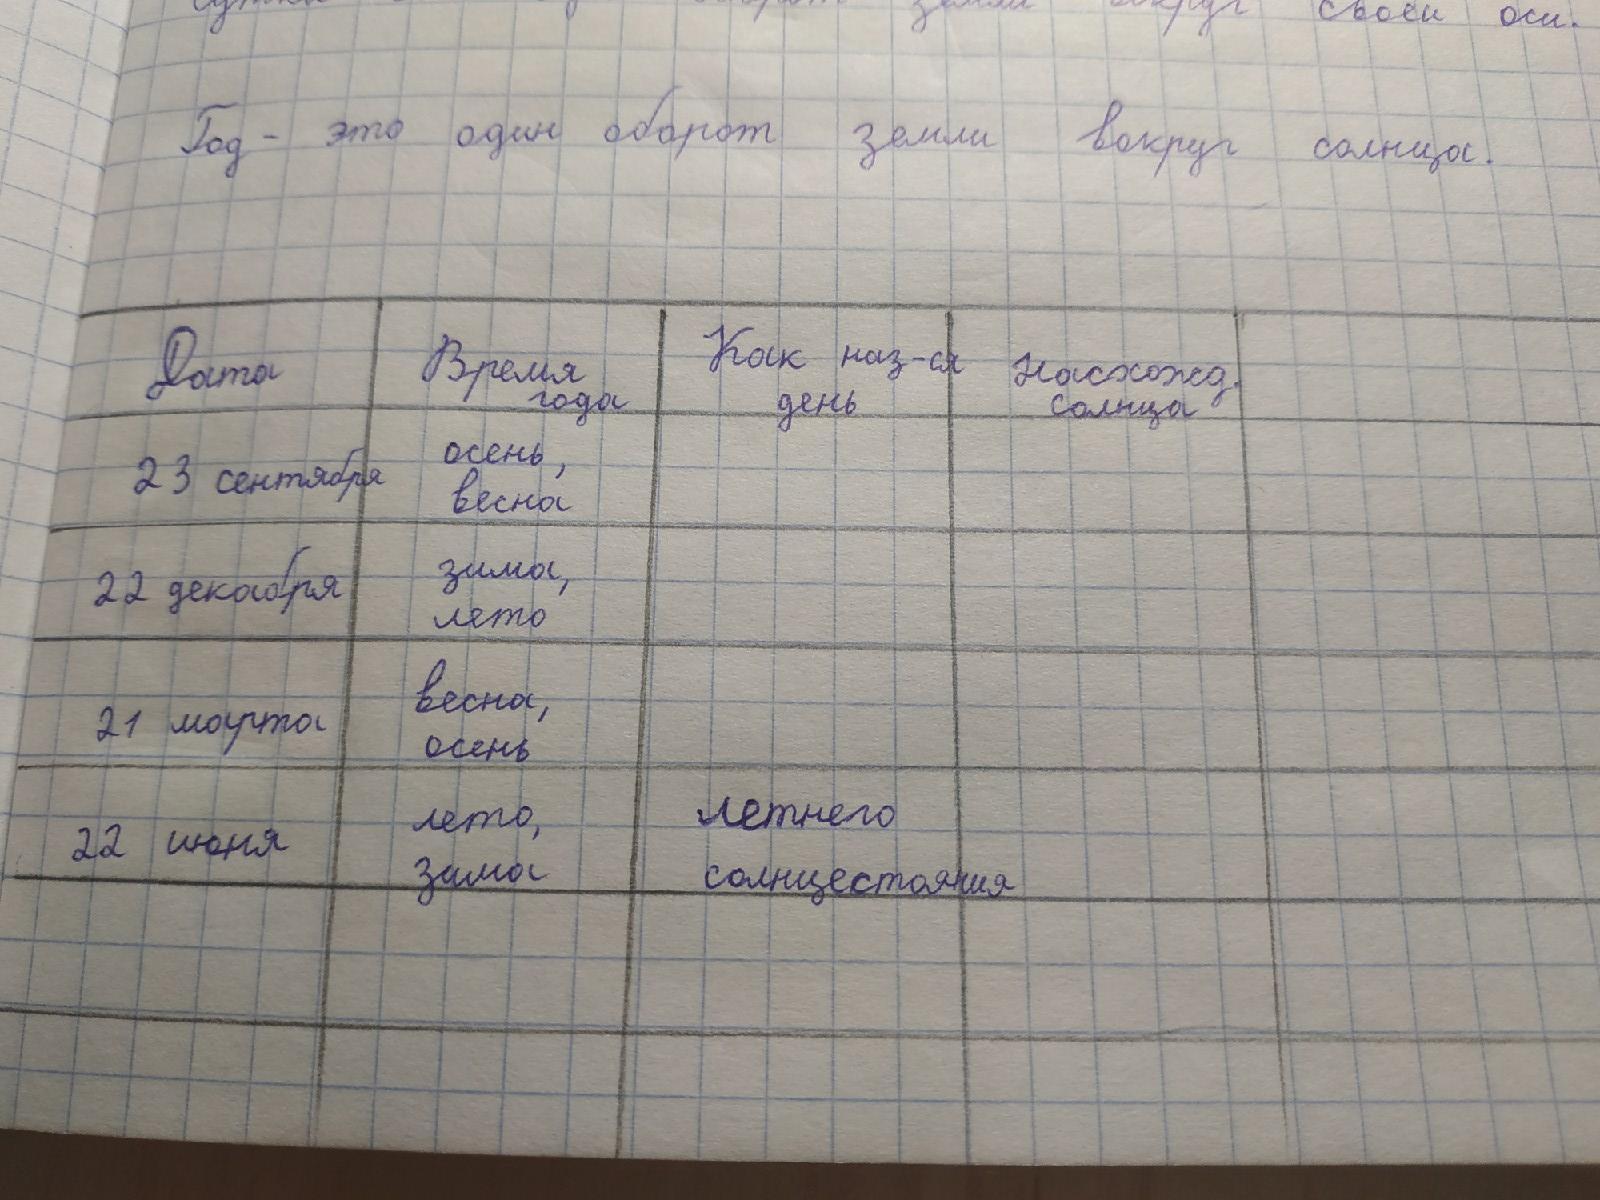 вокруг своей оси.
Год - это один оборот земли вокруг солнца.
Дата
Время
года
Как наз-ся
день
Насхожд.
солнца
23 сентября
осень,
весна
22 декабря
зима,
лето
21 марта
весна,
осень
22 июня
лето,
зима
летнего
солнцестояния